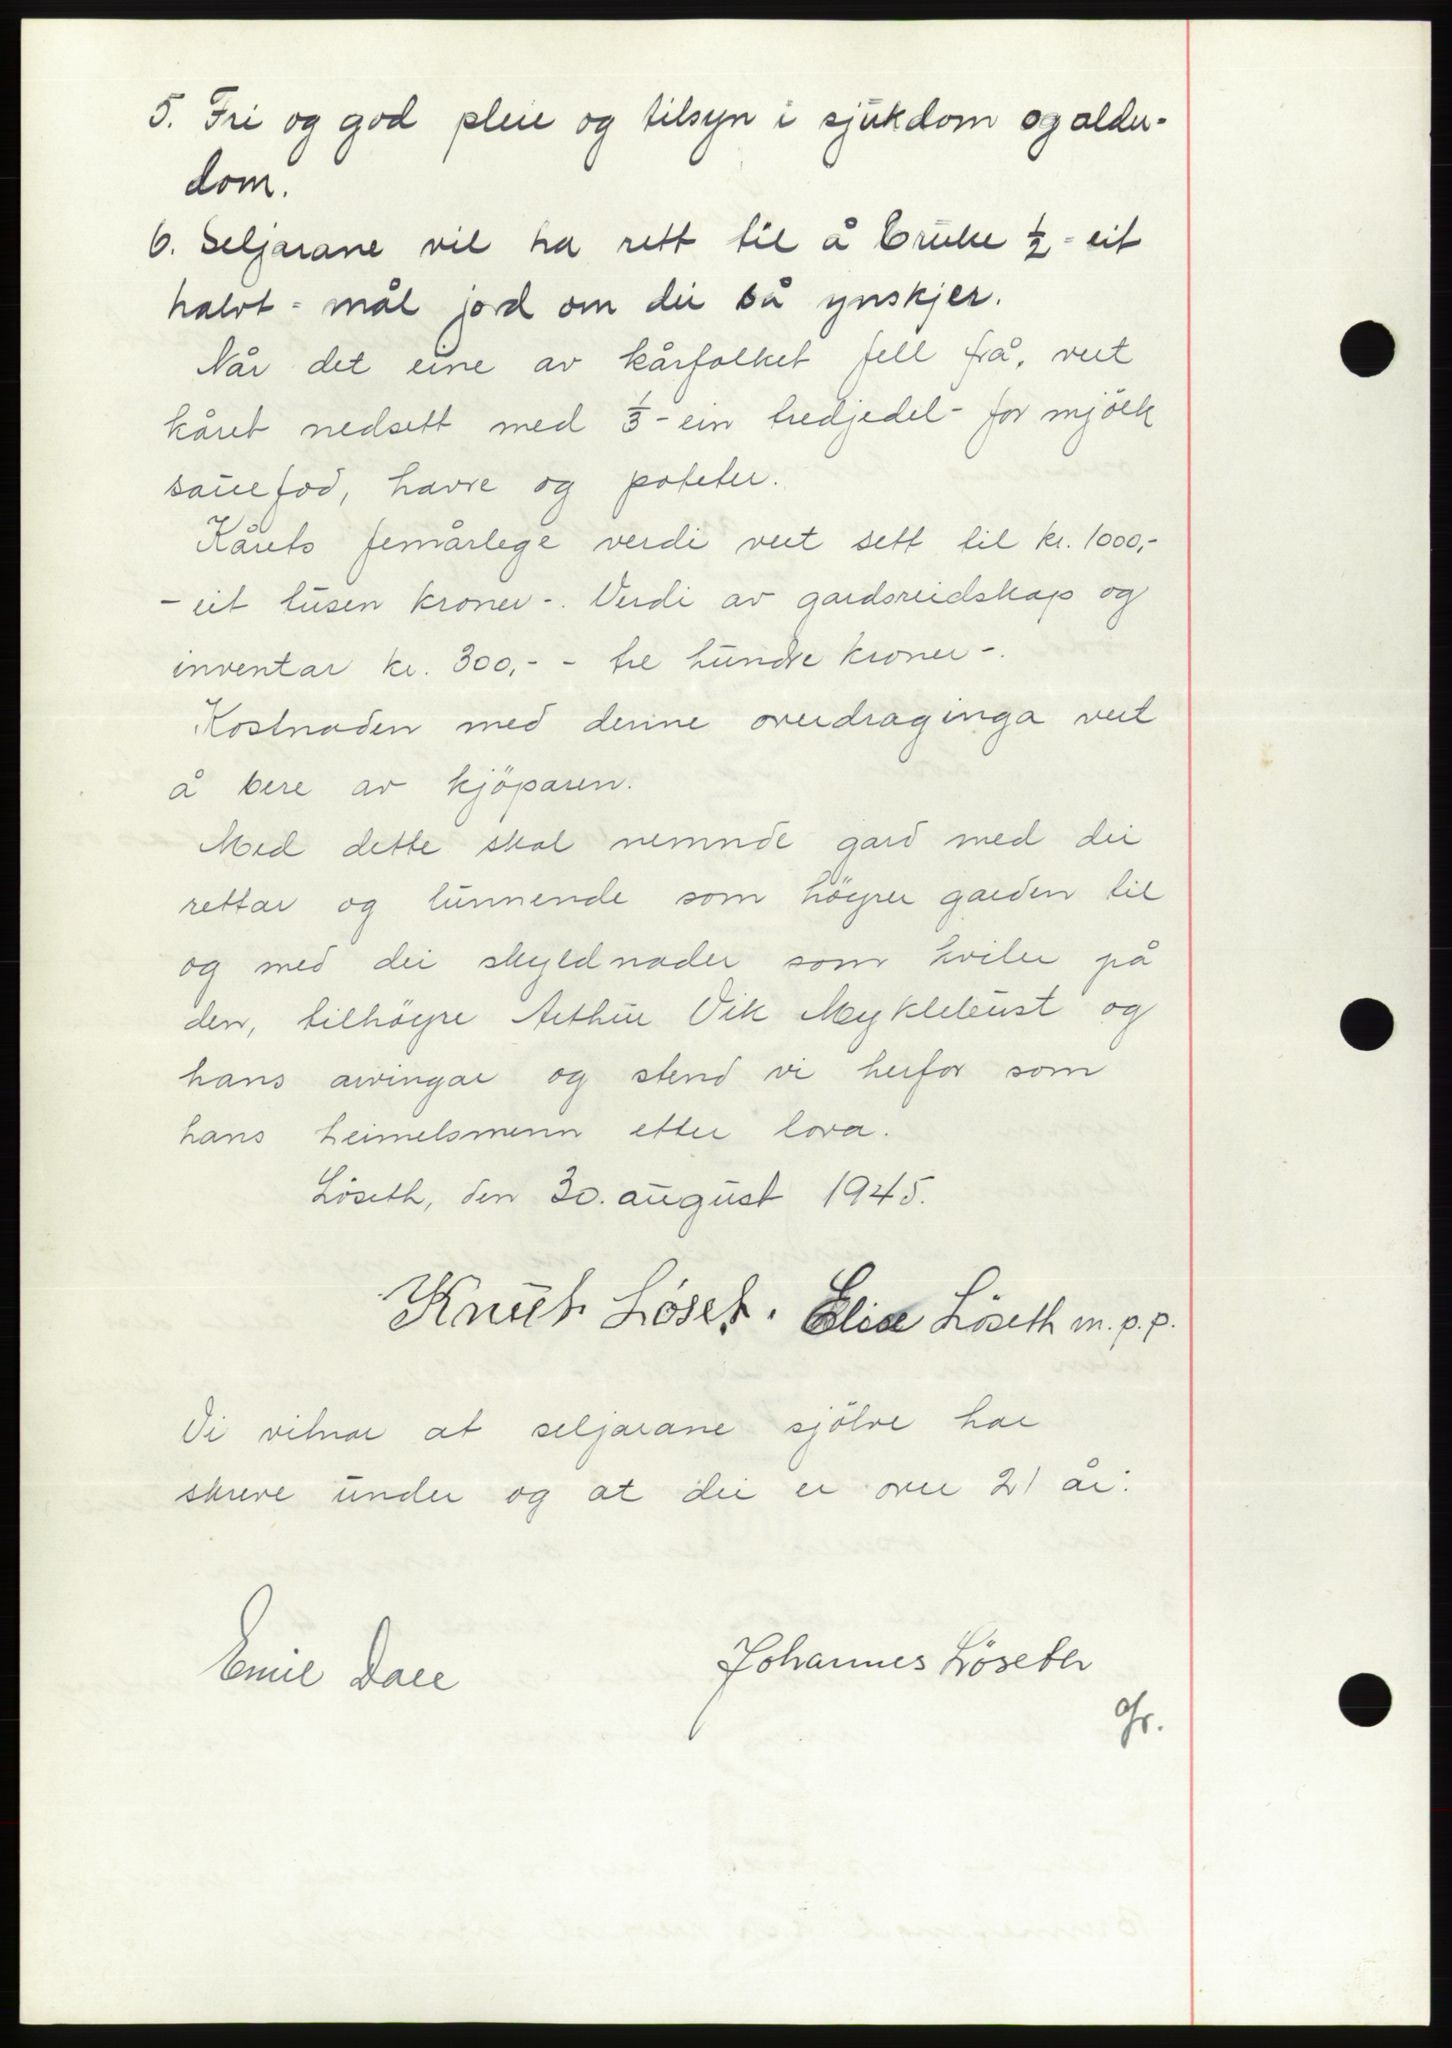 5. Fri og god pleie og tilsyn i sjukdom og alder-
dom.
6. Seljarane vil ha rett til å bruke ½ - eit
halvt - mål jord om dei så ynskjer.
Når det eine av kårfolket fell frå, vert
kåret nedsett med ⅓ - ein tredjedel - for mjölk
sauefod, havre og poteter.
Kårets femårlege verdi vert sett til kr. 1000,-
- eit tusen kroner -. Verdi av gardsreidskap og
inventar kr. 300,- - tre hundre kroner -.
Kostnaden med denne overdraginga vert
å bere av kjöparen.
Med dette skal nemnde gard med dei
rettar og lunnende som höyrer garden til
og med dei skyldnader som kviler på
den, tilhöyre Arthur Vik Myklebust og
hans arvingar og stend vi herfor som
hans heimelsmenn etter lova.
Löseth, den 30. august 1945.
Knut Løset. Elise Löseth m. p. p.
Vi vitnar at seljarane sjölve har
skreve under og at dei er over 21 år:
Emil Dale Johannes Løseth
Gr.